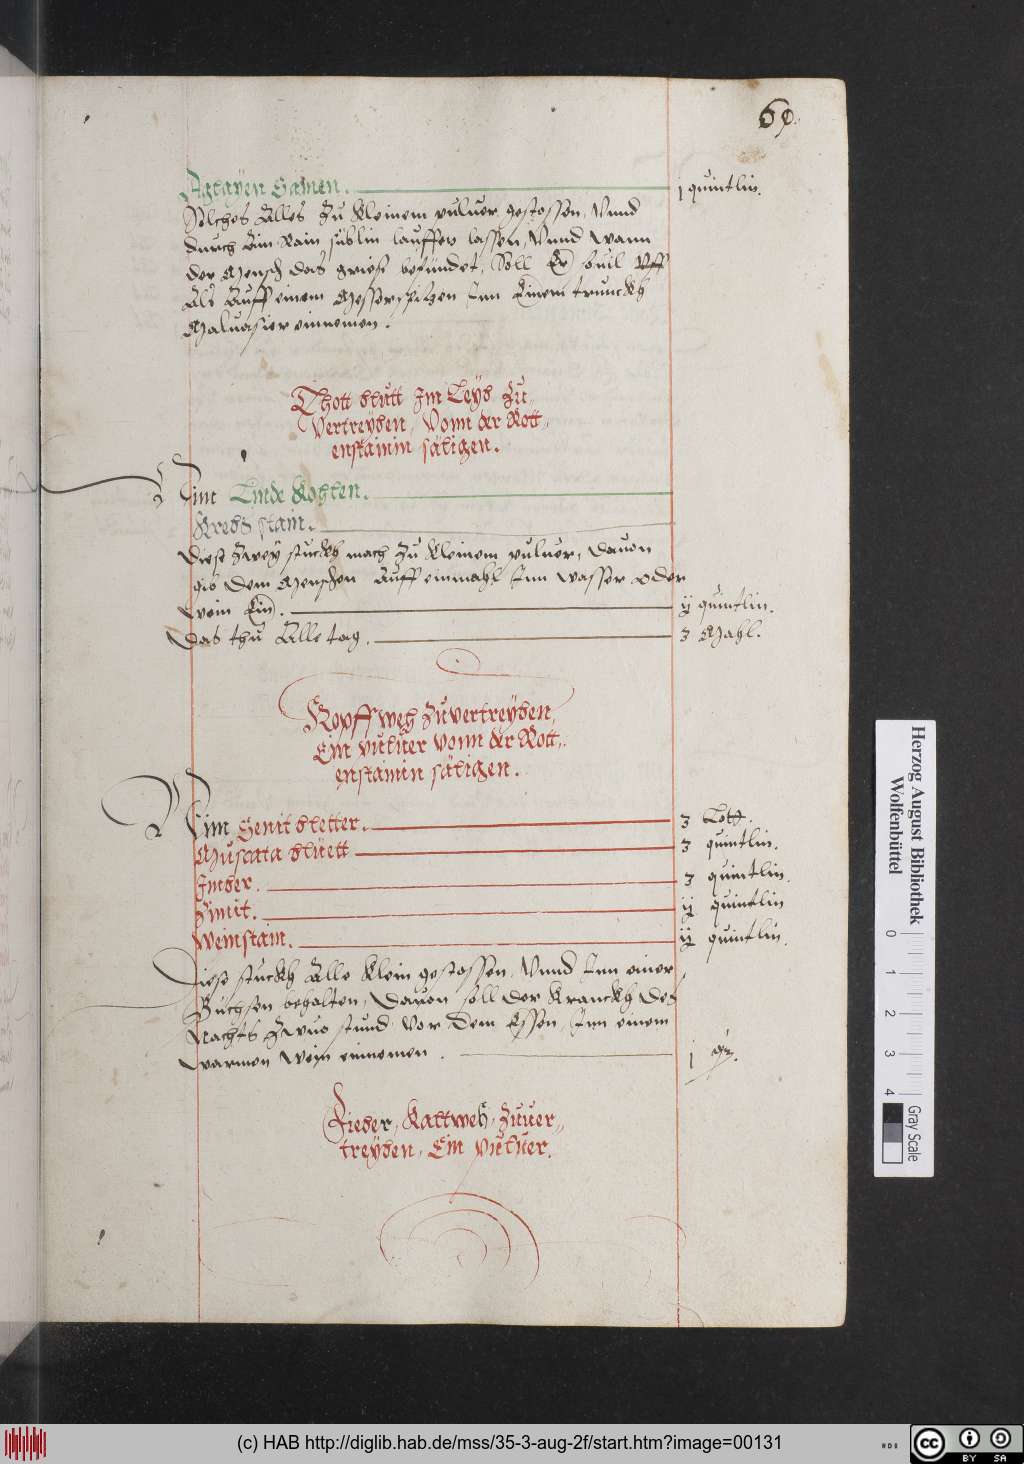 69.
Aglayen Samen. j quintlin.
Solches Alles Zu Kleinem puluer gestossen, Vnnd
durch Ein Rain siblin lauffen lassen, Vnnd wann
der Mensch das grieß befündet, Soll Er souil Vff
Als Auff einem Messerspitzen Inn Einem trunckh
Maluasier einnemen.
Thott blutt Im Leyb Zu
Vertreyben, Vonn der Rott,
enstainin säligen.
Nim Linde Kohlen.
Krebs stain.
Diese Zwey stuckh mach Zu Kleinem puluer, dauon
gib dem Menschen Auff einmahl Inn wasser oder
wein Ein. ij quintlin.
Das thu Alle tag. 3 Mahl.
Kopff weh Zuvertreyben,
Ein puluer vonn der Rott,
enstainin säligen.
Nim Senit bletter. 3 Lott.
Muscata blüett 3 quintlin.
Imber. 3 quintlin.
Zimit. ij quintlin
Weinstain. ij quintlin.
Diese stuckh Alle Klein gestossen, Vnnd Inn einer
Büchsen behalten, Dauon soll der Kranckh des
Nachts Zwuo stund Vor dem Essen, Inn einem
warmen Wein einnemen. j
Fieber, Kaltweh, Zuuer,,
treyben, Ein puluer.
Herzog August Bibliothek
Wolfenbüttel
0 1 2 3 4
Gray Scale
(c) HAB http://diglib.hab.de/mss/35-3-aug-2f/start.htm?image=00131
cc BY SA